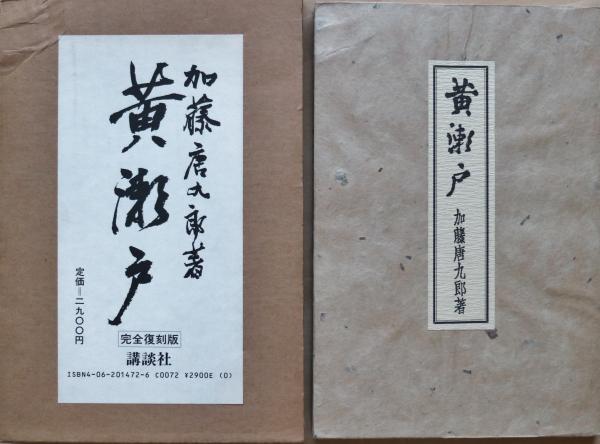 加藤唐九郎著
黄瀬戸
定価=二九〇〇円
完全復刻版
講談社
ISBN4-06-201472-6 C0072 ¥2900E (0)
黄瀬戸
加藤唐九郎著